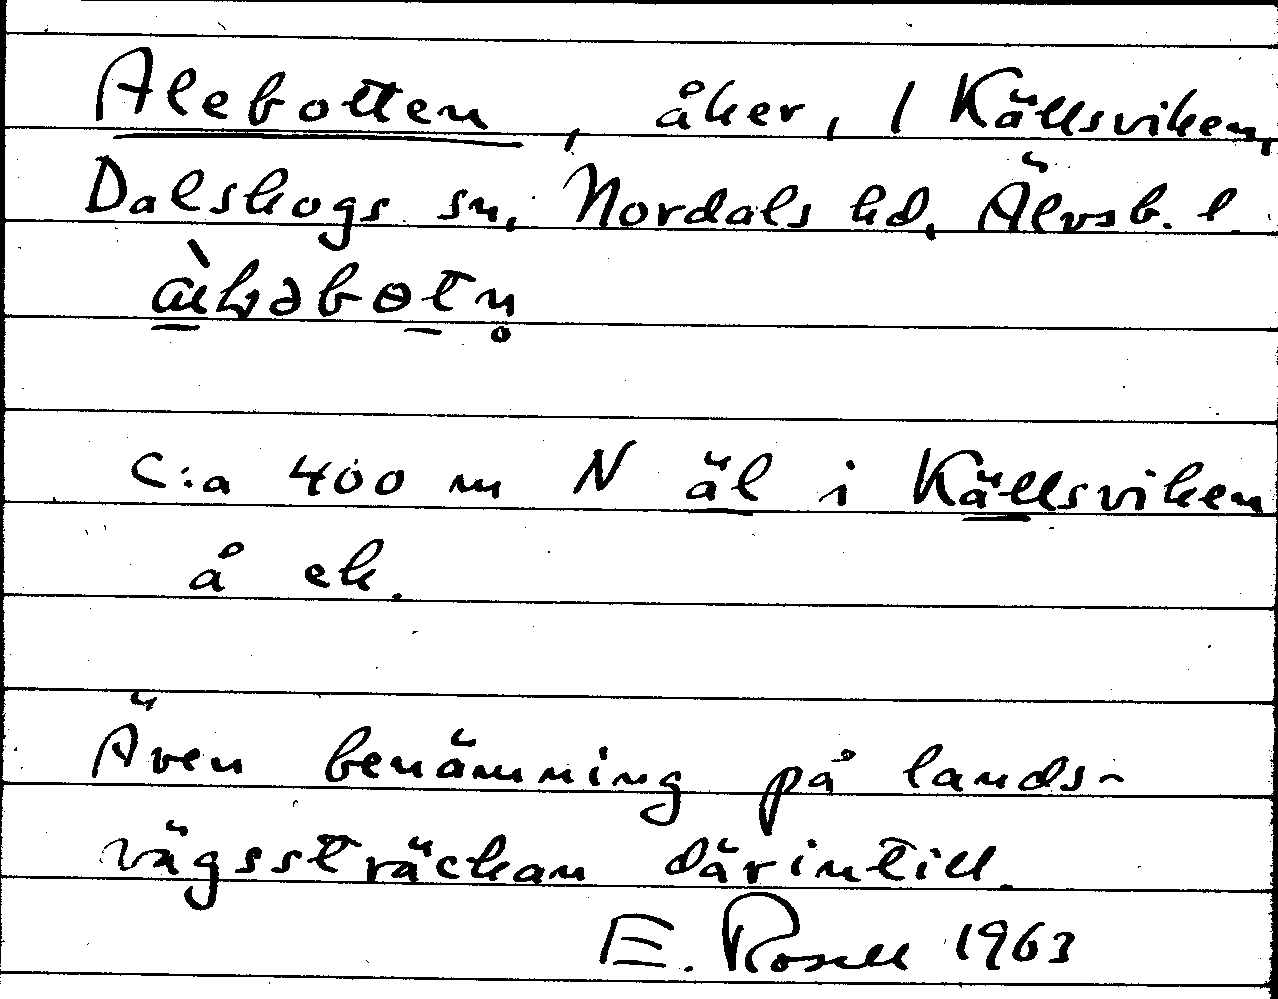 Alebotten, åker, 1 Källsviken,
Dalskogs sn, Nordals hd, Älvsb. l.
C:a 400 m N äl i Källsviken
å ek.
Även benämning på lands-
vägssträckan därintill.
E. Rosell 1963